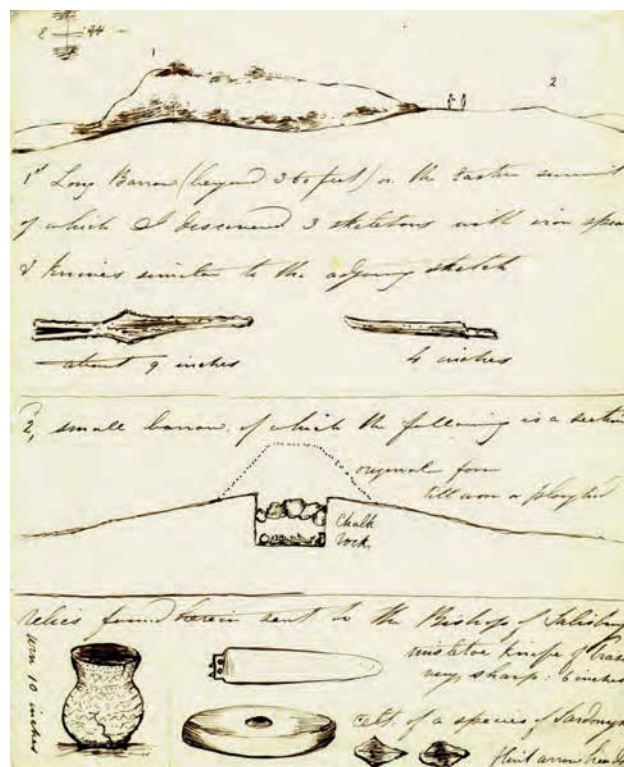 1 2
1st Long Barrow (beyond 360 feet) on the Eastern summit
of which I discovered 3 skeletons with iron spear
& knives similar to the adjoing sketch
about 9 inches
4 inches
2, small barrow of which the following is a section
original form
till worn or ploughed
Chalk
rock
relics found herein sent to the Bishop of Salisbury
urn 10 inches
mistletoe knife of brass
very sharp: 6 inches
celt. of a species of Sardonyx
flint arrow heads